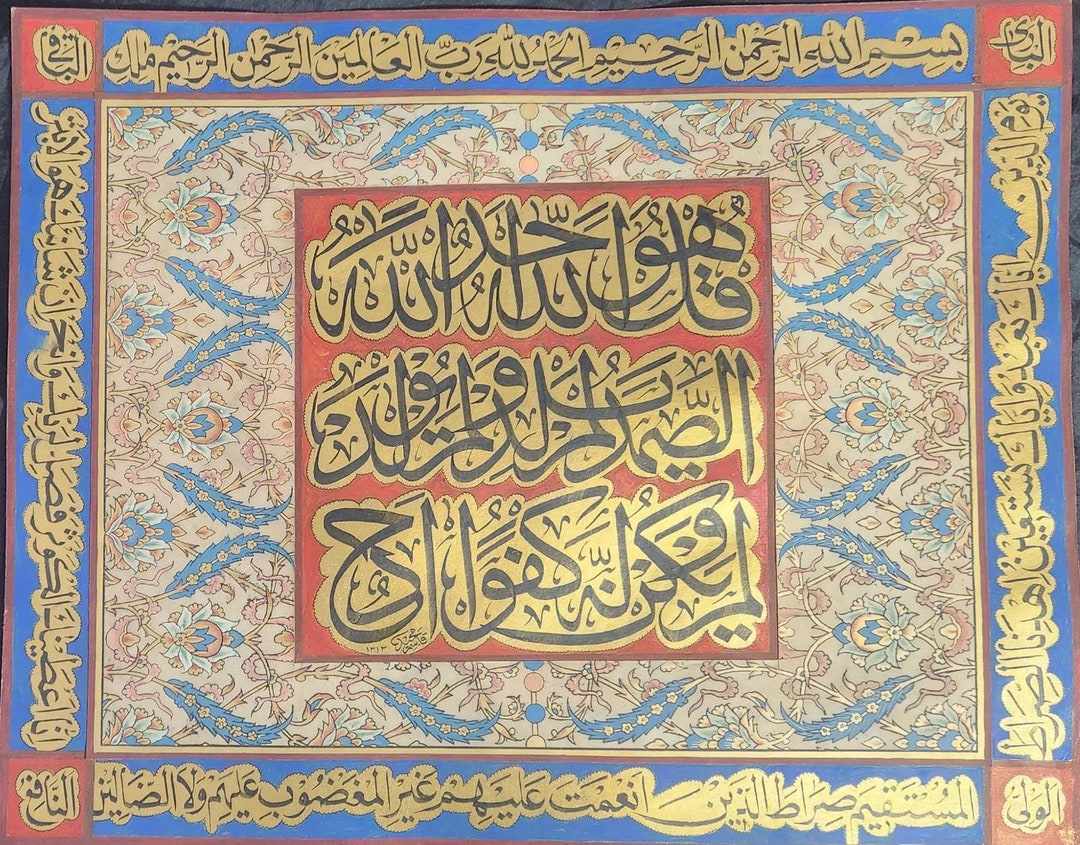 بسم الله الرحمن الرحيم الحمد لله رب العالمين الرحمن الرحيم ملك
يوم الدين اياك نعبد واياك نستعين اهدنا الصراط
المستقيم صراط الذين انعمت عليهم غير المغضوب عليهم ولا الضالين
هو الابتر
الباقي
النافع
الولي
قل هو الله احد الله
الصمد لم يلد ولم يولد
ولم يكن له كفوا احد
١٣١٢